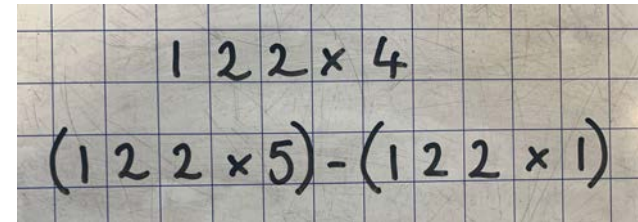 122 × 4
(122 × 5) - (122 × 1)